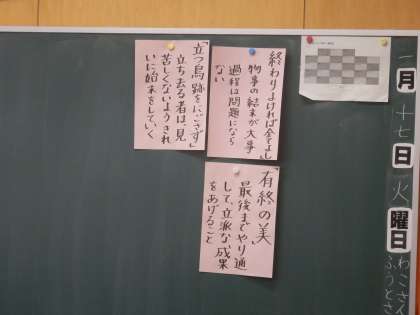 二月十七日火曜日
「終わりよければ全てよし」
物事の結末が大事
過程は問題になら
ない
「立つ鳥跡をにごさず」
立ち去る者は、見
苦しくないようきれ
いに始末をしていく
「有終の美」
最後までやり通
して、立派な成果
をあげること